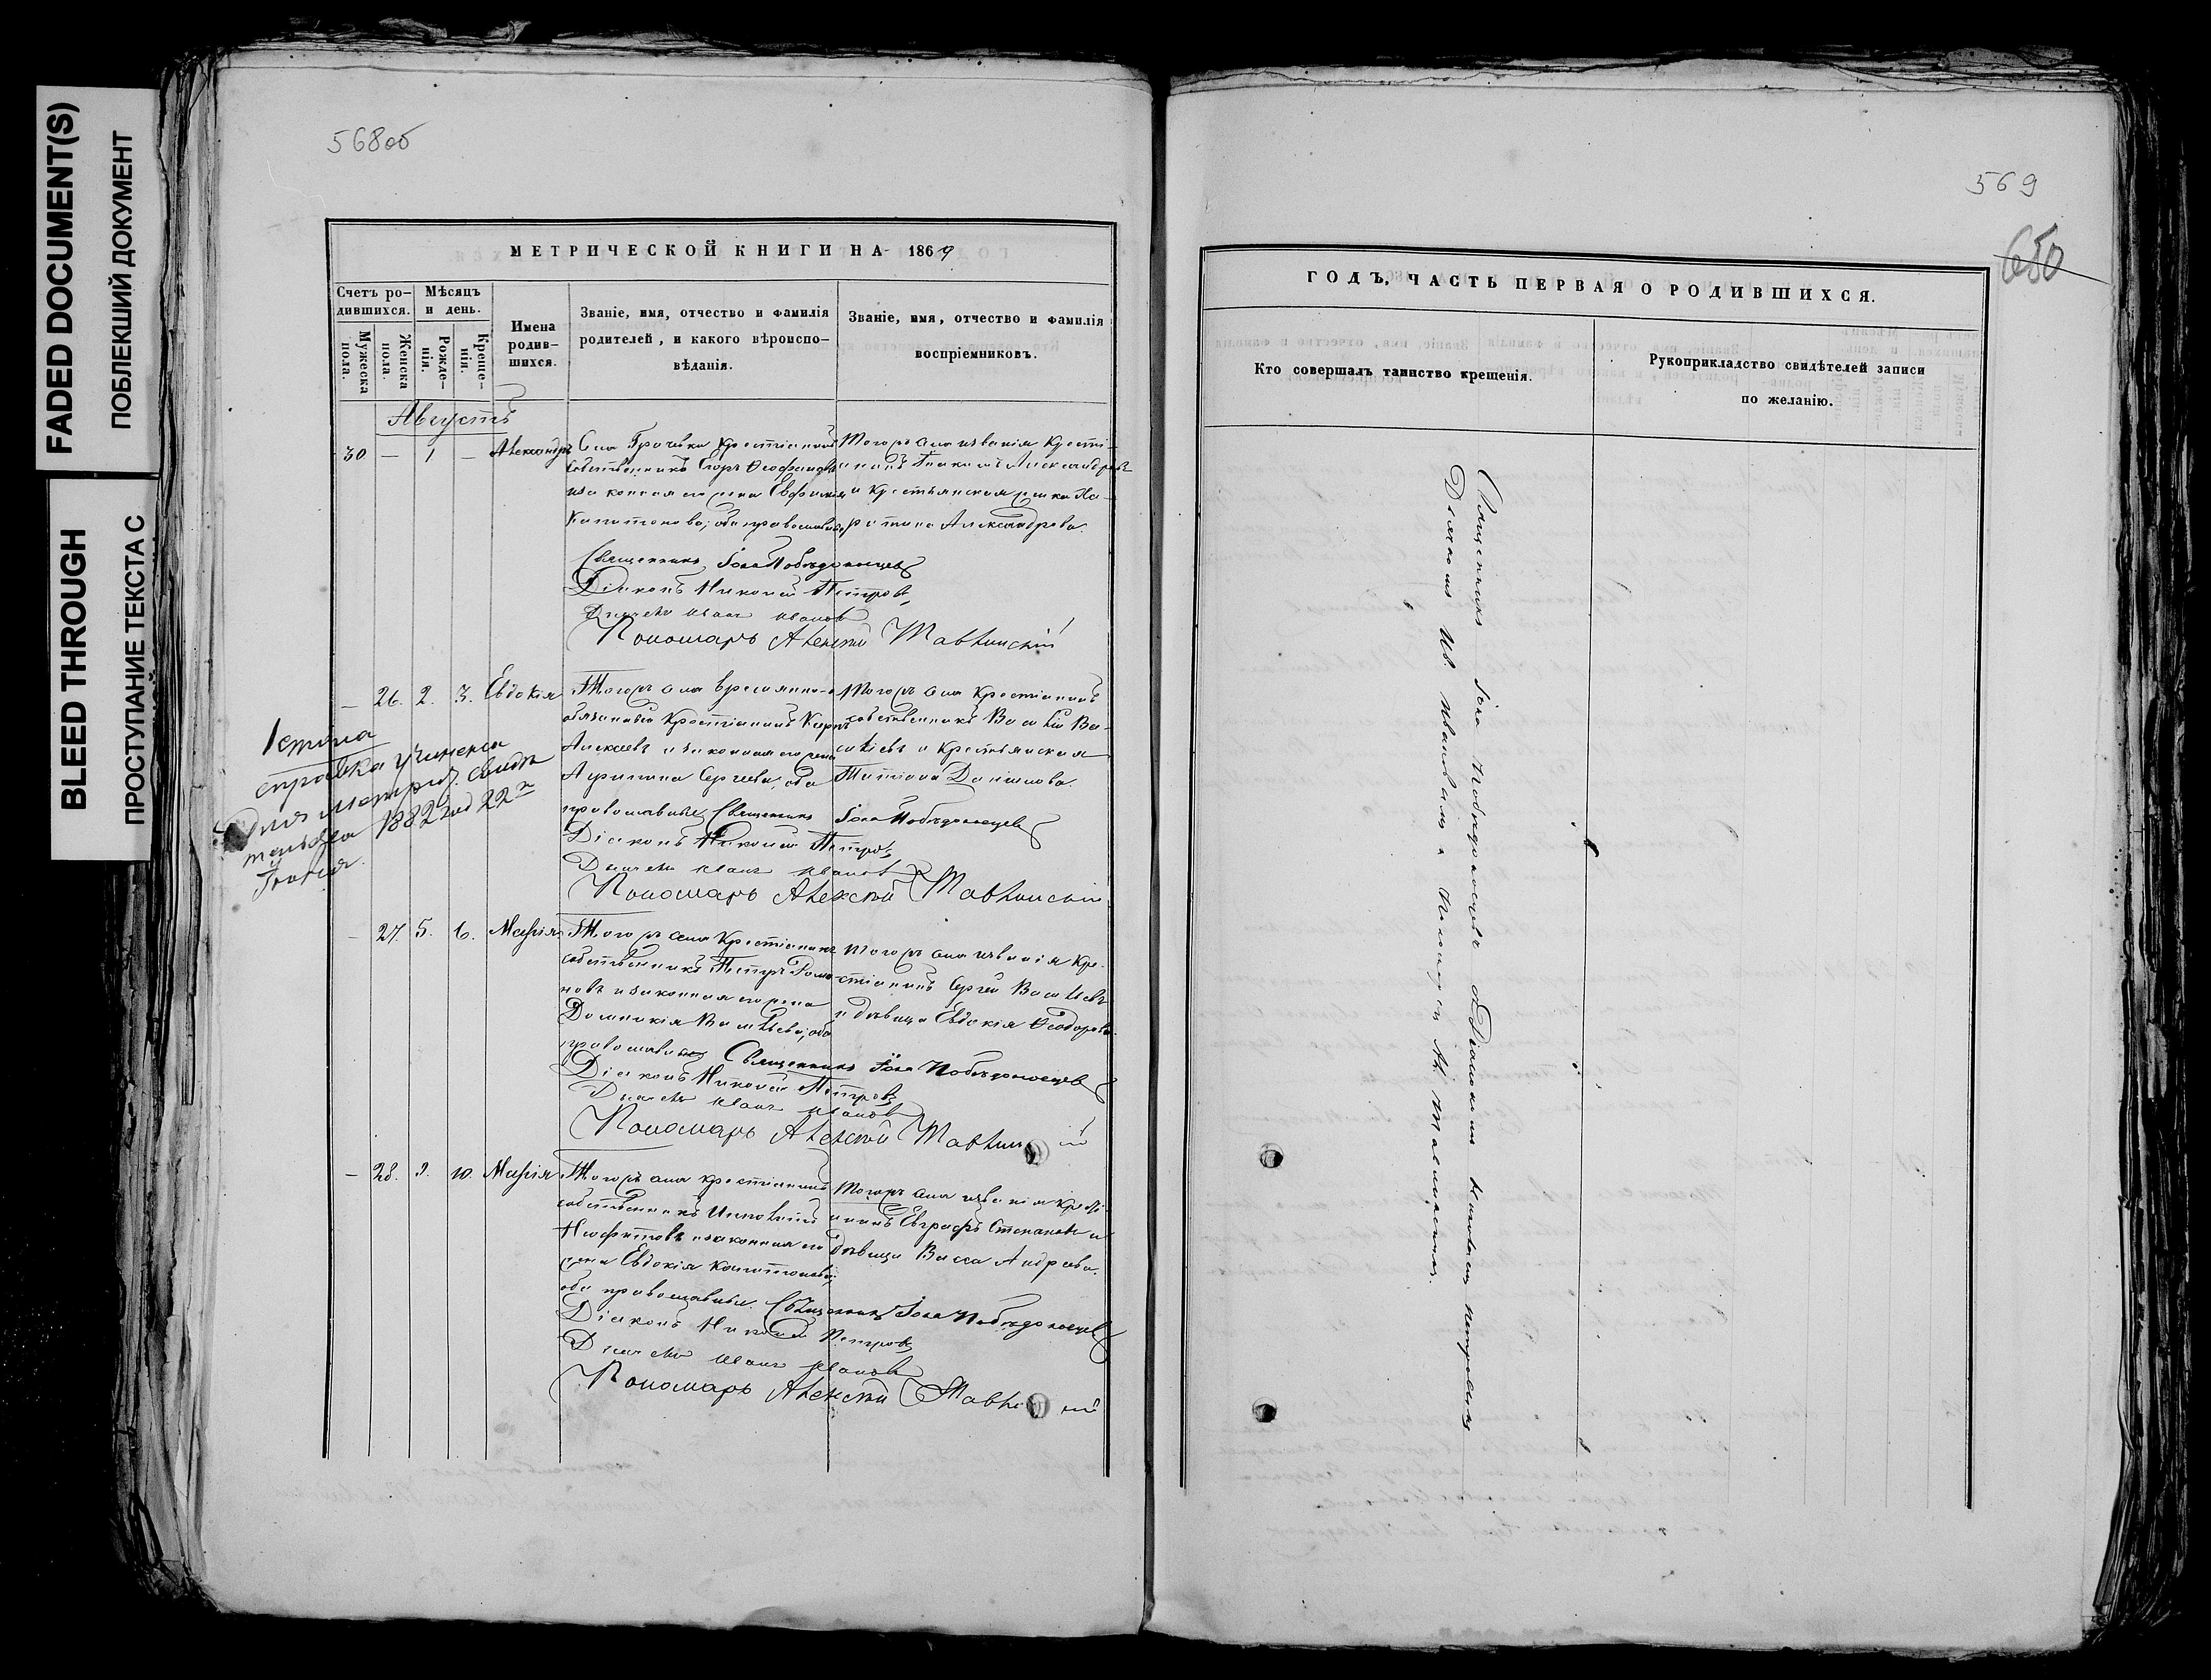 FADED DOCUMENT(S)
ПОБЛЕКШИЙ ДОКУМЕНТ
BLEED THROUGH
ПРОСТУПАНИЕ ТЕКСТА С
568об
МЕТРИЧЕСКОЙ КНИГИ НА 1869
Счетъ ро-
дившихся.
Мужеска
пола.
Женска
пола.
Мѣсяцъ
и день.
Рожде-
нія.
Креще-
нія.
Имена
родив-
шихся.
Званіе, имя, отчество и фамилія
родителей, и какого вѣроиспо-
вѣданія.
Званіе, имя, отчество и фамилія
воспріемниковъ.
Августъ
30 — 1 — Александръ
Села Грачевки крестіанинъ
собственникъ Егоръ Ѳеофановъ
и законная его жена Евфимія
Капитонова; оба православные,
Тогожъ села изванія крестi-
анинъ Александровъ
и крестьянская
Александрова.
Священникъ Іона Побѣдоносцевъ
Діаконъ Николай Петровъ
Дьячекъ Иванъ Ивановъ
Пономарь Алексѣй Тавлинскій
— 26. 2. 3. Евдокія
Тогожъ села временно-
обязанный крестіанинъ Карпъ
Алексѣевъ и законная его жена
Сергѣева, оба
православные
Тогожъ села крестіанинъ
собственникъ Василій Ва-
сильевъ и крестьянская
Данилова.
Священникъ Іона Побѣдоносцевъ
Діаконъ Николай Петровъ
Дьячекъ Иванъ Ивановъ
Пономарь Алексѣй Тавлинскій
справка учинена
для метрич. свидѣ
тельства 1882 год 22го
— 27. 5. 6. Марія.
Тогожъ села крестіанинъ
собственникъ Петръ Рома-
новъ и законная его жена
Домникія Васильева; оба
православные
Тогожъ села изванія кре-
стіанинъ Сергей Васильевъ
и дѣвица Евдокія Ѳеодорова.
Священникъ Іона Побѣдоносцевъ
Діаконъ Николай Петровъ
Дьячекъ Иванъ Ивановъ
Пономарь Алексѣй Тавлин ій
— 28. 9. 10. Марія
Тогожъ села крестіанинъ
собственникъ Ипполитъ
Неофитовъ и законная его
жена Евдокія Капитонова,
оба православные.
Тогожъ села изванія кресті-
анинъ Евграфъ Степановъ и
дѣвица Васса Андреева.
Священникъ Іона Побѣдоносцевъ
Діаконъ Николай Петровъ
Дьячекъ Иванъ Ивановъ
Пономарь Алексѣй Тавли кій
569
650
ГОДЪ, ЧАСТЬ ПЕРВАЯ О РОДИВШИХСЯ.
Кто совершалъ таинство крещенія.
Рукоприкладство свидѣтелей записи
по желанію.
Священникъ Іона Побѣдоносцевъ съ Діакономъ Николаемъ Петровымъ
Дьячкомъ Ив. Ивановымъ и Пономаремъ Ал. Тавлинскимъ.